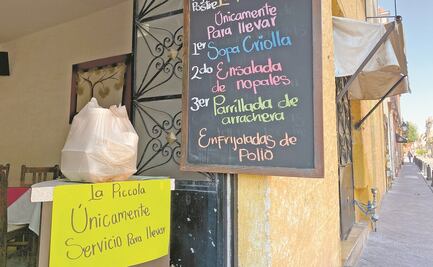 Postre
Únicamente
Para llevar
1er Sopa Criolla
2do Ensalada
de nopales
3er Parrillada de
arrachera
Enfrijoladas de
Pollo
La Piccola
Únicamente
Servicio Para llevar